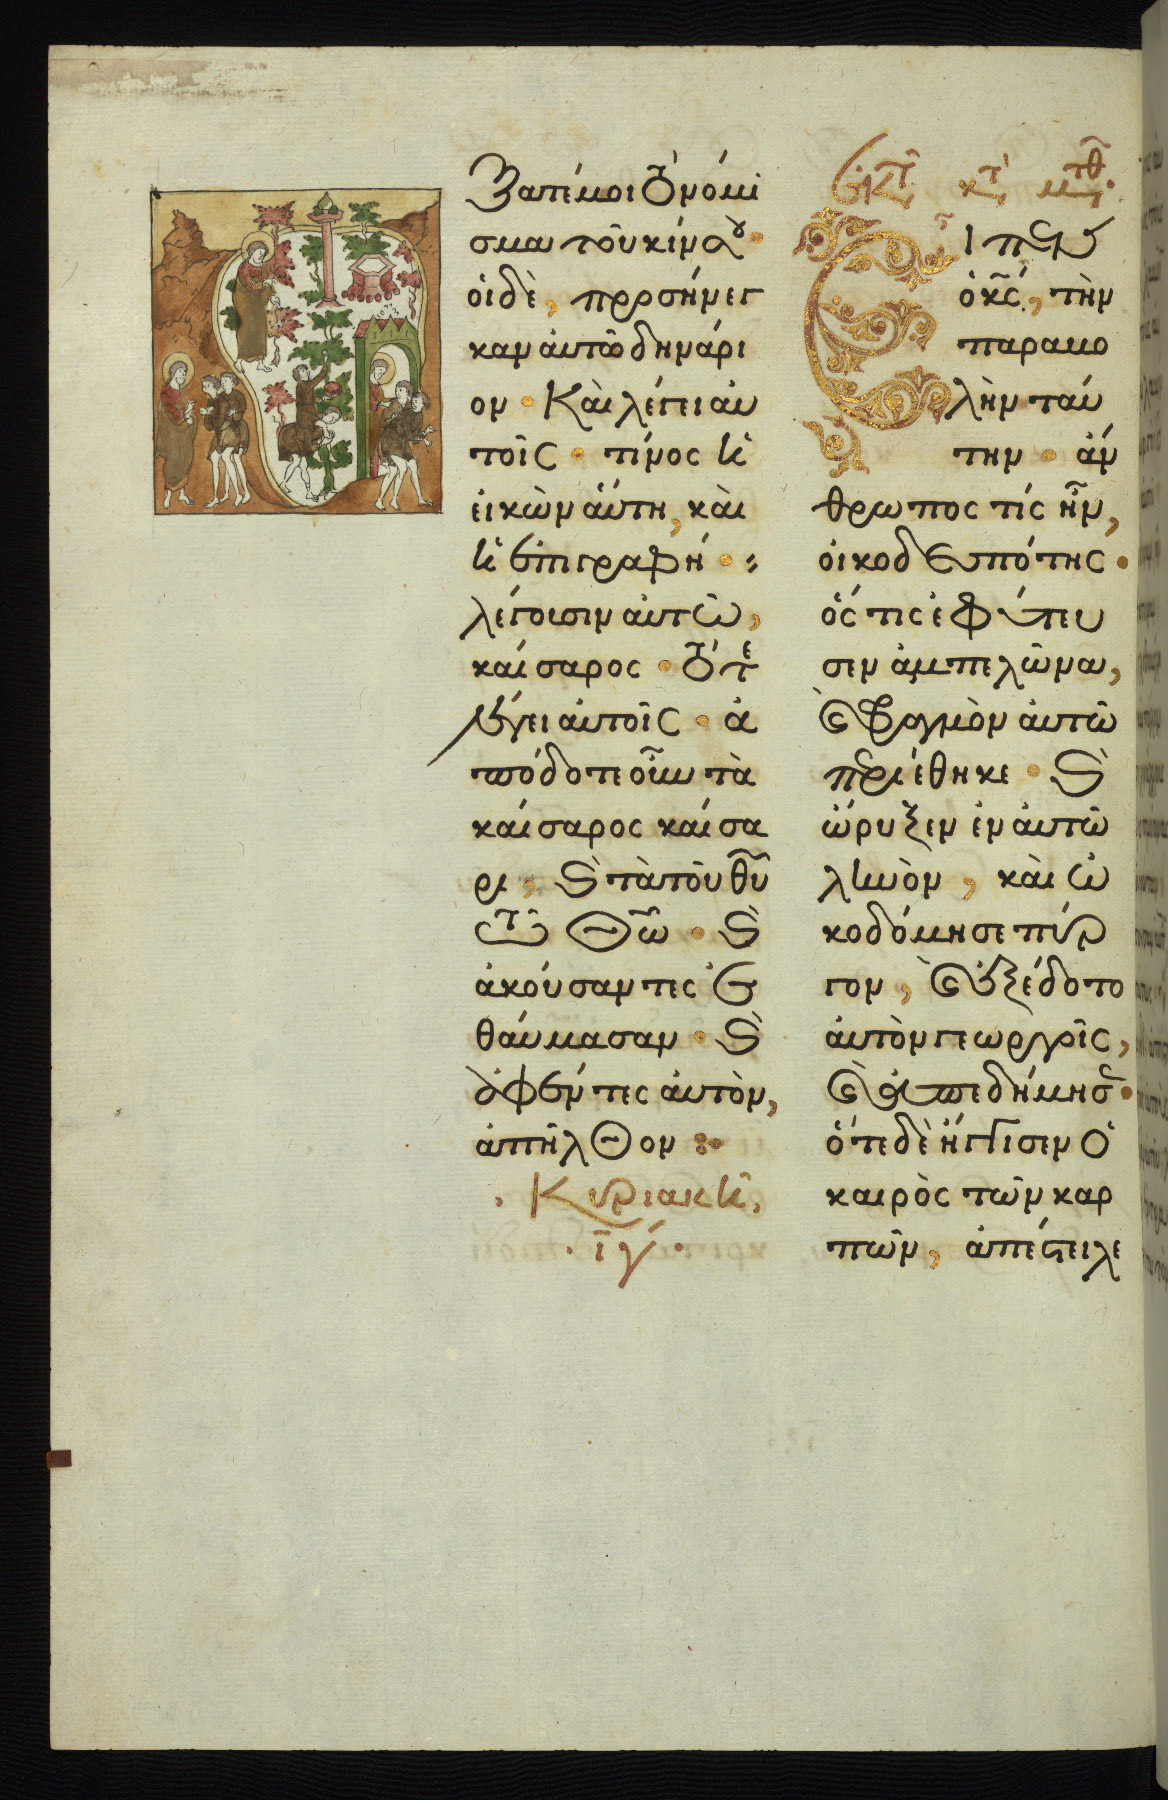 ξατέ μοι τὸ νόμι
σμα τοῦ κίνσου·
οἱ δὲ, προσήνεγ
καν αὐτῶ δηνάρι
ον· Καὶ λέγει αὐ
τοῖς· τίνος ἡ
εἰκὼν ἅυτη, καὶ
ἡ ἐπιγραφή·;
λέγουσιν αὐτῶ,
καίσαρος· τότε
λέγει αὐτοῖς· ἀ
πόδοτε οὖν τὰ
καίσαρος καίσα
ρι, καὶ τὰ τοῦ θῦ
τῶ Θῶ· καὶ
ἀκούσαντες ἐ
θαύμασαν· καὶ
ἀφέντες αὐτὸν,
ἀπῆλθον:
Κυριακῆ,
·ιγ·
Ἐκ τοῦ κτ μτθ·
Εἶπεν
ὁ κς, τὴν
παραβο
λὴν ταύ
την· ἄν
θρωπος τίς ἦν,
οἰκοδεσπότης·
ὅς τις ἐφύτευ
σεν ἀμπελῶνα,
καὶ φραγμὸν αὐτῶ
περιέθηκε· καὶ
ὤρυξεν ἐν αὐτῶ
ληνὸν, καὶ ὠ
κοδόμησε πύρ
γον, καὶ ἐξέδοτο
αὐτὸν γεωργοῖς,
καὶ ἀπεδήμησεν·
ὅτε δὲ ἤγγισεν ὁ
καιρὸς τῶν καρ
πῶν, ἀπέστειλε